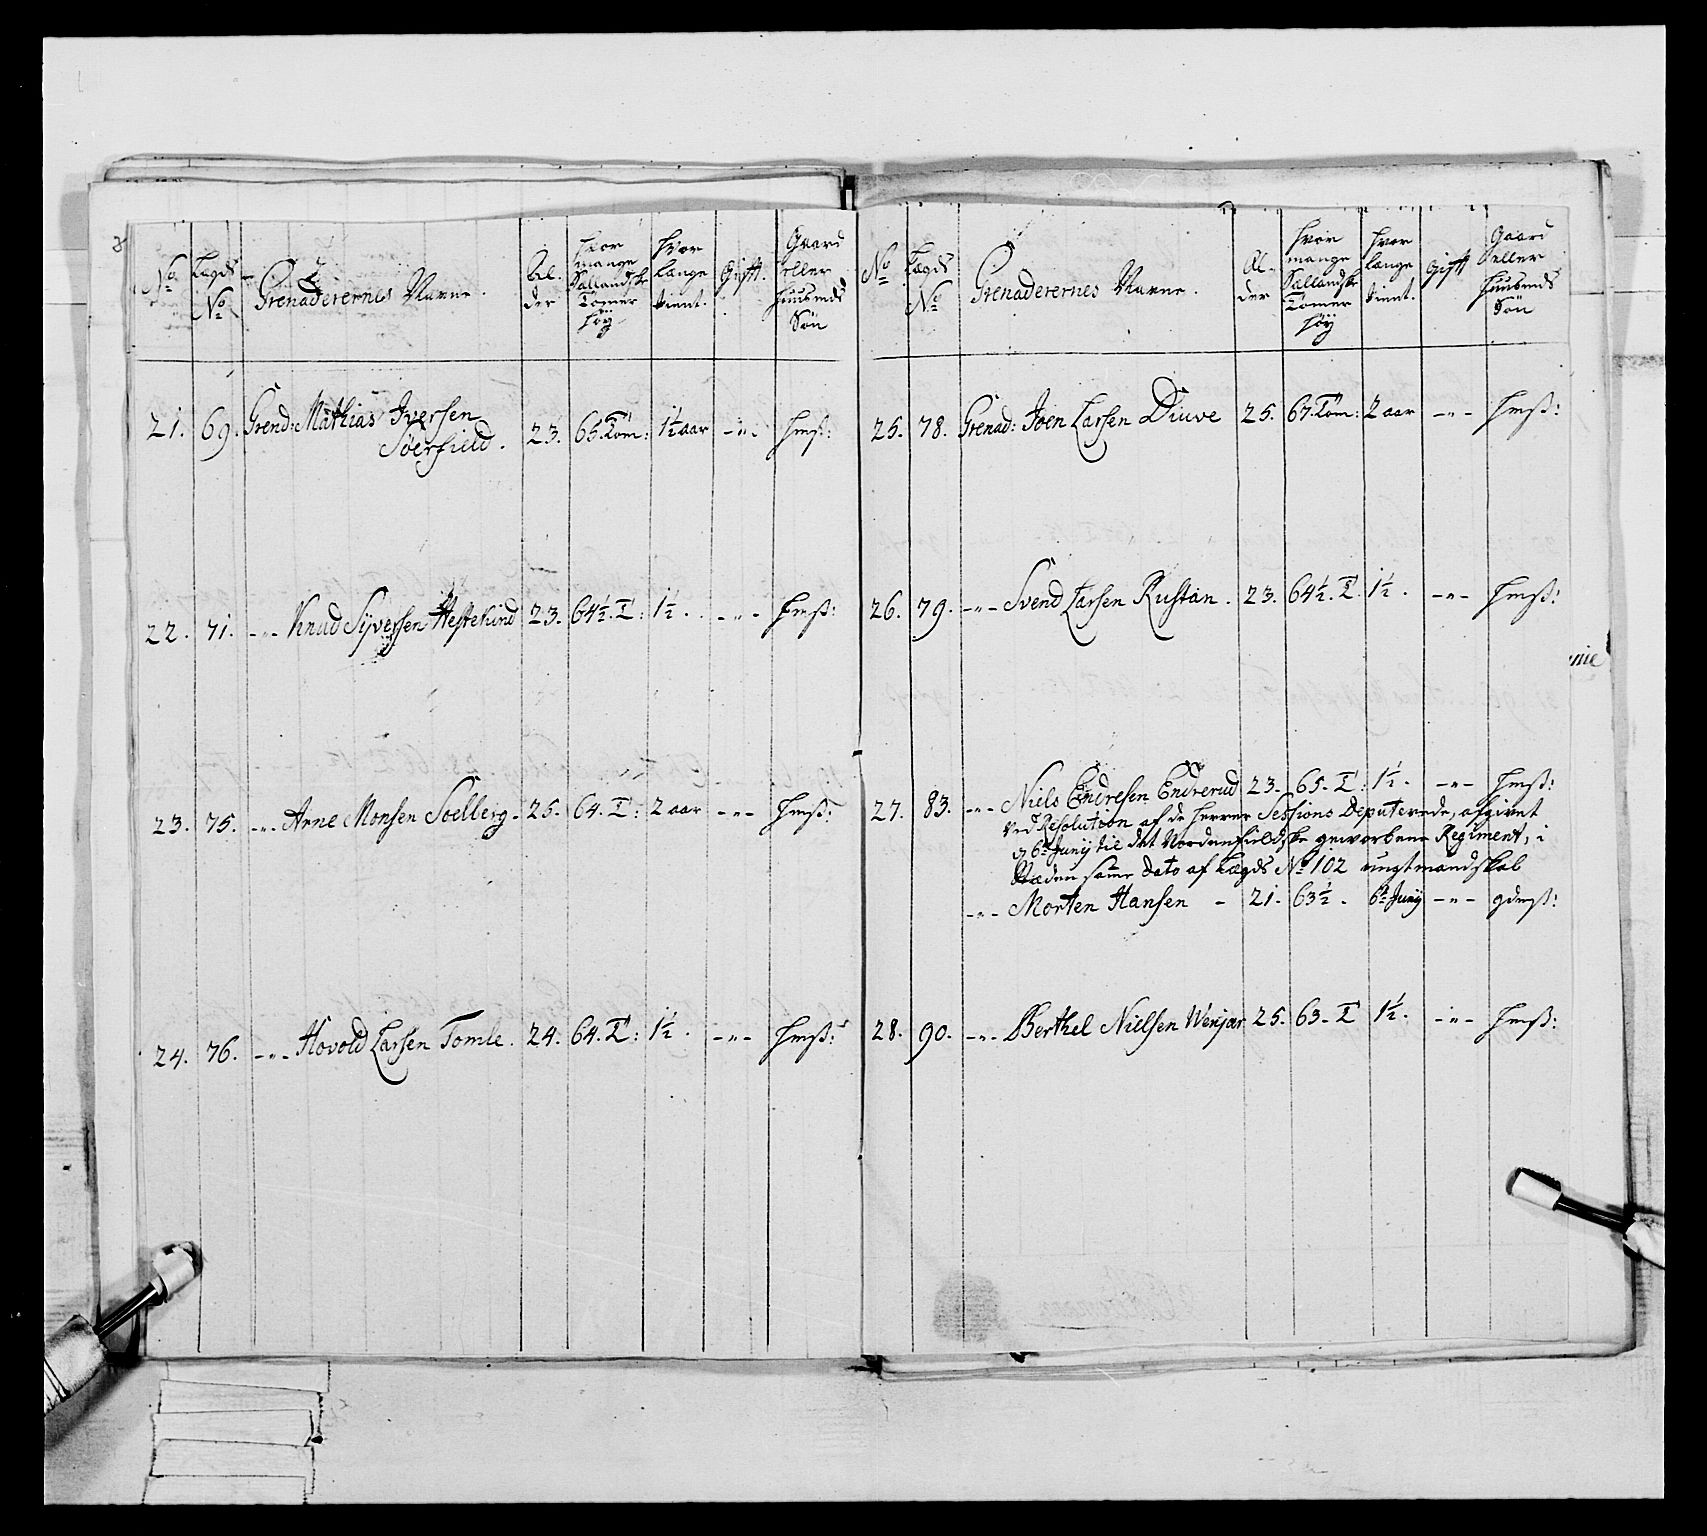 No
Lægds No
Grenaderernes Navne.
Al-
der
hvor
mange
Sællandske
Tomer
höÿ
hvor
længe
tiennt.
Gift.
Gaard
eller
Huusmds
Sön
21. 69. Grend: Mathias Iversen
Söerfield. 23. 65. Tom: 1½ aar -"- Hmß:
22. 71. -"- Knud Sÿversen Hestekind 23. 64½. T: 1½. -"- Hmß:
23. 75. -"- Arne Monsen Soelberg. 25. 64. T: 2 aar -"- Hmß:
24. 76. -"- Hovold Larsen Tomle. 24. 64. T: 1½. -"- Hmß:
No
Lægds
No
Grenaderernes Navne.
Al-
der
hvor
mange
Sællandske
Tomer
höÿ
hvor
længe
tiennt.
Gift
Gaard
eller
Huusmds
Sön
25. 78. Grenad: Joen Larsen Diuve 25. 67. Tom: 2 aar -"- Hmß:
26. 79. -"- Svend Larsen Rustan. 23. 64½. T 1½. -"- Hmß:
27. 83. -"- Niels Endresen Endrerud 23. 65. T: 1½. -"- Hmß:
Ved Resolution af de Herrer Sessions Deputerede, afgivet
d 6te Junÿ til det Nordenfieldske geworbene Regiment, i
Stæden samme dato af Lægds No 102 ungtmandskab
-"- Morten Hansen - 21. 63½. 6te Junÿ -"- gdmß:
28. 90. -"- Berthel Nielsen Wenjar 25. 63. T 1½. -"- Hmß: